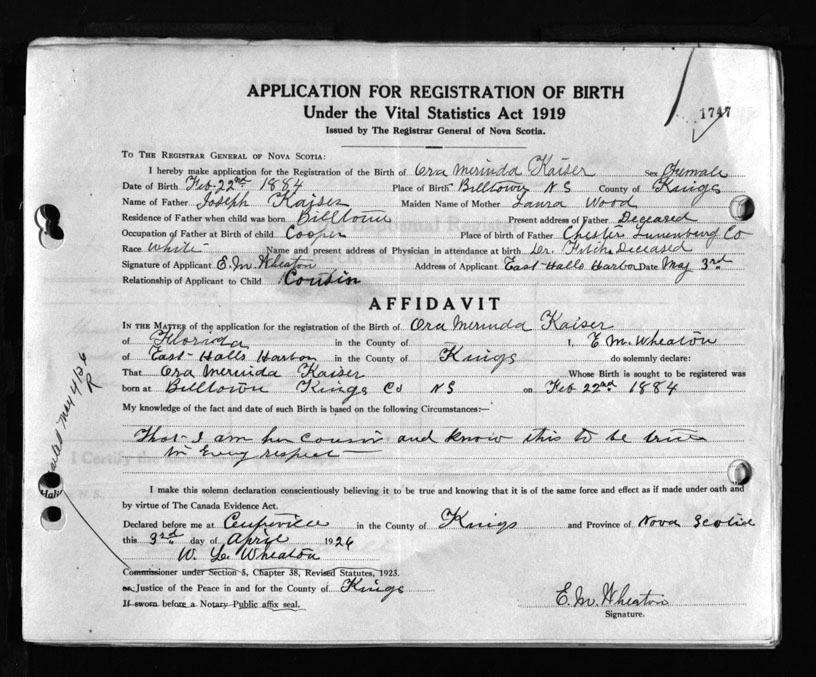 APPLICATION FOR REGISTRATION OF BIRTH
Under the Vital Statistics Act 1919
Issued by The Registrar General of Nova Scotia.
1747
TO THE REGISTRAR GENERAL OF NOVA SCOTIA:
I hereby make application for the Registration of the Birth of Ora Merinda Kaiser Sex Female
Date of Birth Feb 22nd 1884 Place of Birth Billtown N S County of Kings
Name of Father Joseph Kaiser Maiden Name of Mother Laura Wood
Residence of Father when child was born Billtown Present address of Father Deceased
Occupation of Father at Birth of child Cooper Place of birth of Father Chester Lunenburg Co
Race White Name and present address of Physician in attendance at birth Dr. Fitch Deceased
Signature of Applicant E. M. Wheaton Address of Applicant East Halls Harbor Date May 3rd
Relationship of Applicant to Child Cousin
AFFIDAVIT
IN THE MATTER of the application for the registration of the Birth of Ora Merinda Kaiser
of Florida in the County of I, E M. Wheaton
of East Halls Harbor in the County of Kings do solemnly declare:
That Ora Merinda Kaiser Whose Birth is sought to be registered was
born at Billtown Kings Co N S on Feb 22nd 1884
My knowledge of the fact and date of such Birth is based on the following Circumstances:—
That I am her Cousin and know this to be true
in Every respect
I make this solemn declaration conscientiously believing it to be true and knowing that it is of the same force and effect as if made under oath and
by virtue of The Canada Evidence Act.
Declared before me at in the County of Kings and Province of Nova Scotia
this 3rd day of April 1926
W. L. Wheaton
Commissioner under Section 5, Chapter 38, Revised Statutes, 1923.
or, Justice of the Peace in and for the County of Kings
If sworn before a Notary Public affix seal.
E. M. Wheaton
Signature.
May 4/26
R